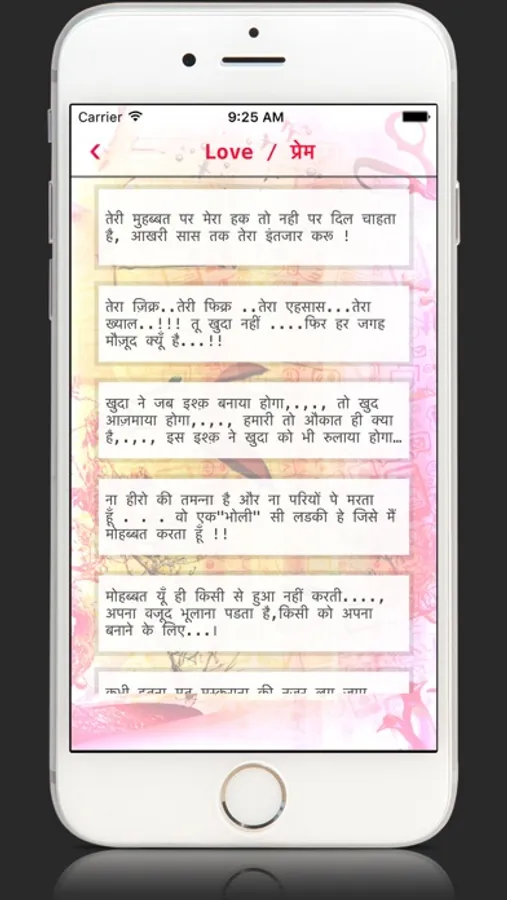 Carrier 9:25 AM
Love / प्रेम
तेरी मुहब्बत पर मेरा हक तो नही पर दिल चाहता
है, आखरी सास तक तेरा इंतजार करू !
तेरा ज़िक्र..तेरी फिक्र ..तेरा एहसास...तेरा
ख्याल..!!! तू खुदा नहीं ....फिर हर जगह
मौज़ूद क्यूँ है...!!
खुदा ने जब इश्क़ बनाया होगा,.,., तो खुद
आज़माया होगा,.,., हमारी तो औकात ही क्या
है,.,., इस इश्क़ ने खुदा को भी रुलाया होगा…
ना हीरो की तमन्ना है और ना परियों पे मरता
हूँ . . . वो एक"भोली" सी लडकी हे जिसे मैं
मोहब्बत करता हूँ !!
मोहब्बत यूँ ही किसी से हुआ नहीं करती....,
अपना वजूद भूलाना पडता है,किसी को अपना
बनाने के लिए...।